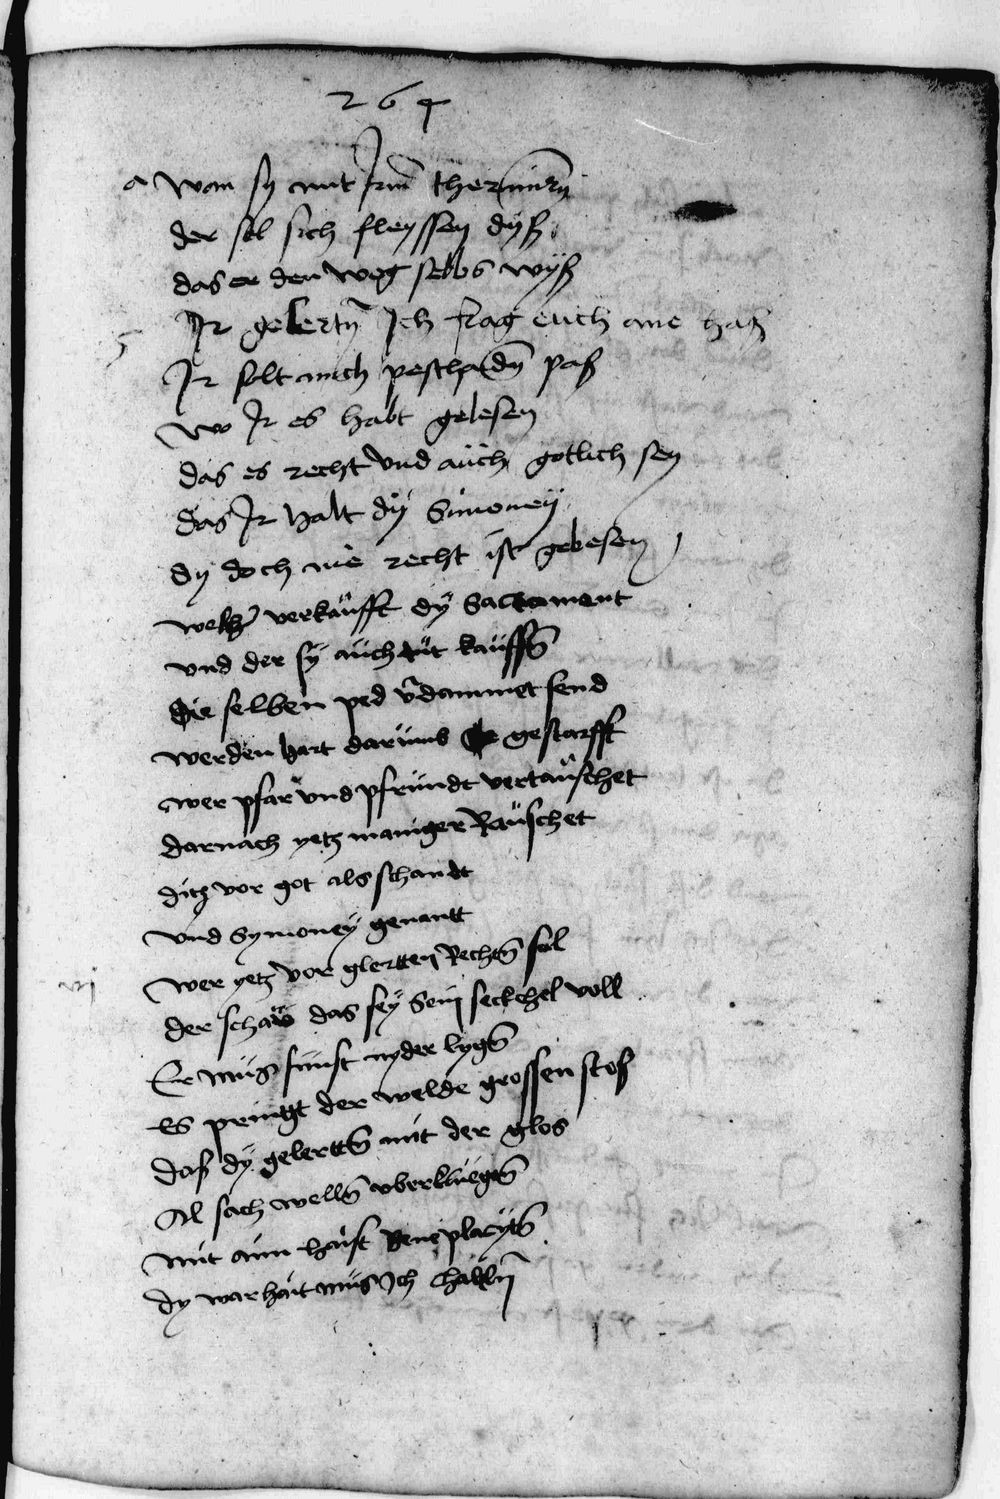 264
wan sy mit Irm thermiñrn
der sol sich fleyssen dyß
das er den weg selbs wyß
Ir gelertn Ich frag euch ane haß
5
Ir solt mich peschaidn paß
wo Ir es habt gelesen
das es recht vnd aüch gotlich sey
das Ir halt dÿ Simoneÿ
dy doch nie recht ist gebesen
welher verkaüfft dÿ Sacrament
vnd der sÿ aüch tüt kaüffn
die selben ped vdammet send
werden hart darümb gestrafft
wer pfar vnd pfründt vertaüschet
darnach yetz maniger Raüschet
ditz vor got als schandt
vnd Symoney genantt
wer yetz vor glertten Rechtn sol
der schaw das seÿ Sein seckchel voll
Er müs sünst nyder lygn
Es pringt der welde grossen stos
das dÿ gelerttn mit der glos
Al sach welln vberkriegn
mit aim haist Beneplacytn
dy warhait müs Ich